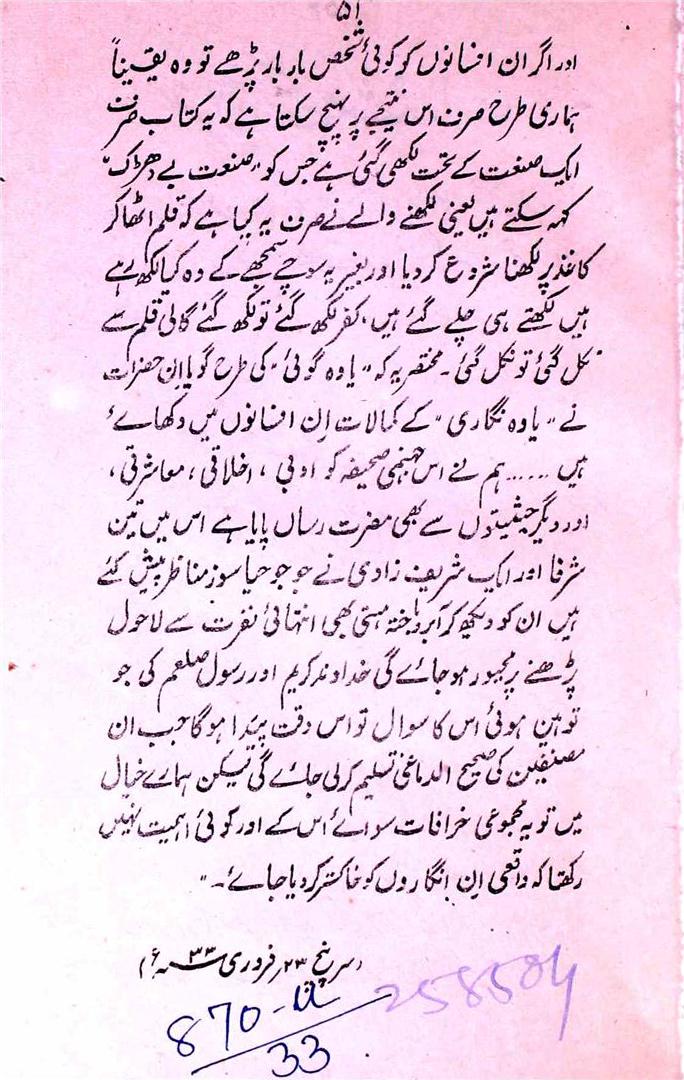 ۵۱
اور اگر ان افسانوں کو کوئی شخص بار بار پڑھے تو وہ یقیناً
ہماری طرح صرف اس نتیجے پر پہنچ سکتا ہے کہ یہ کتاب صرف
ایک صنعت کے تحت لکھی گئی ہے جس کو "صنعت بے دھڑک"
کہہ سکتے ہیں یعنی لکھنے والے نے صرف یہ کیا ہے کہ قلم اٹھا کر
کاغذ پر لکھنا شروع کر دیا اور بغیر یہ سوچے سمجھے کے وہ کیا لکھ رہے
ہیں لکھتے ہی چلے گئے ہیں، کفر لکھ گئے تو لکھ گئے گالی قلم سے
نکل گئی تو نکل گئی۔ مختصر یہ کہ "یاوہ گوئی" کی طرح گویا ان حضرات
نے "یاوہ نگاری" کے کمالات اِن افسانوں میں دکھائے
ہیں ...... ہم نے اس جہنمی صحیفہ کو ادبی، اخلاقی، معاشرتی،
اور دیگر حیثیتوں سے بھی مضرت رساں پایا ہے اس میں تین
شرفا اور ایک شریف زادی نے جو جو حیا سوز مناظر پیش کئے
ہیں ان کو دیکھ کر آبرو باختہ ہستی بھی انتہائی نفرت سے لاحول
پڑھنے پر مجبور ہو جائے گی خداوند کریم اور رسول صلعم کی جو
توہین ہوئی اس کا سوال تو اس وقت پیدا ہوگا جب ان
مصنفین کی صحیح الدماغی تسلیم کر لی جائے گی لیکن ہمارے خیال
میں تو یہ مجموعی خرافات سوائے اس کے اور کوئی اہمیت نہیں
رکھتا کہ واقعی اِن انگاروں کو خاکستر کر دیا جائے۔"
(سر پنچ ۲۳؍ فروری ۳۳ء)
258504
870-U
33